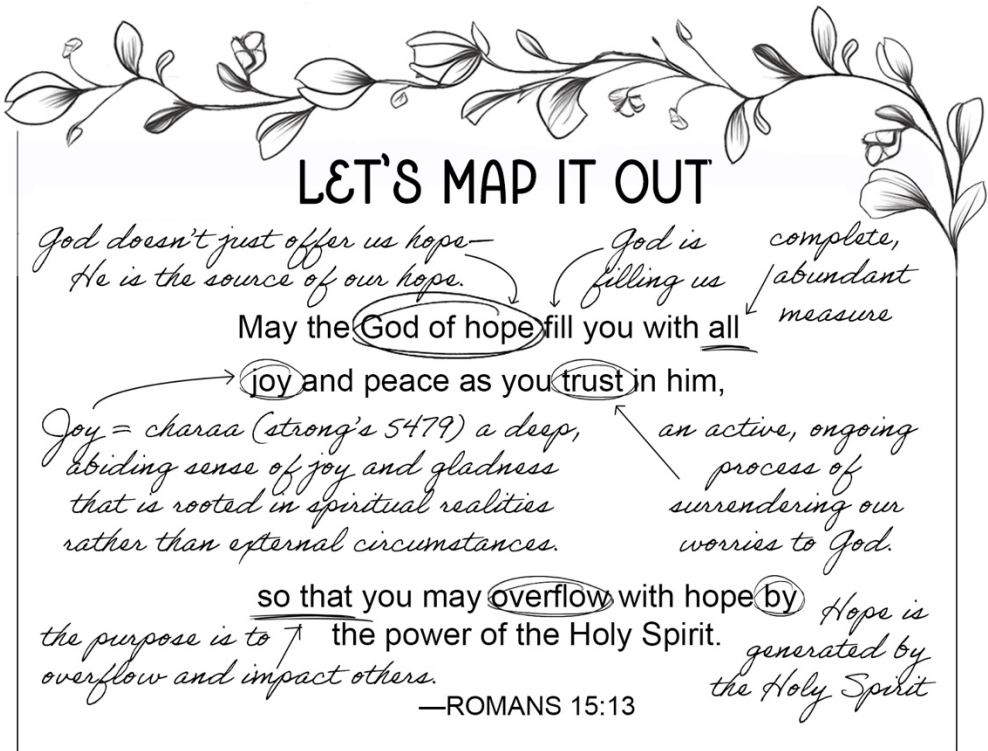 LET'S MAP IT OUT
God doesn't just offer us hope—
He is the source of our hope.
God is
filling us
complete,
abundant
measure
May the God of hope fill you with all
joy and peace as you trust in him,
Joy = charaa (strong's 5479) a deep,
abiding sense of joy and gladness
that is rooted in spiritual realities
rather than external circumstances.
an active, ongoing
process of
surrendering our
worries to God.
so that you may overflow with hope by
the power of the Holy Spirit.
the purpose is to
overflow and impact others.
Hope is
generated by
the Holy Spirit
—ROMANS 15:13